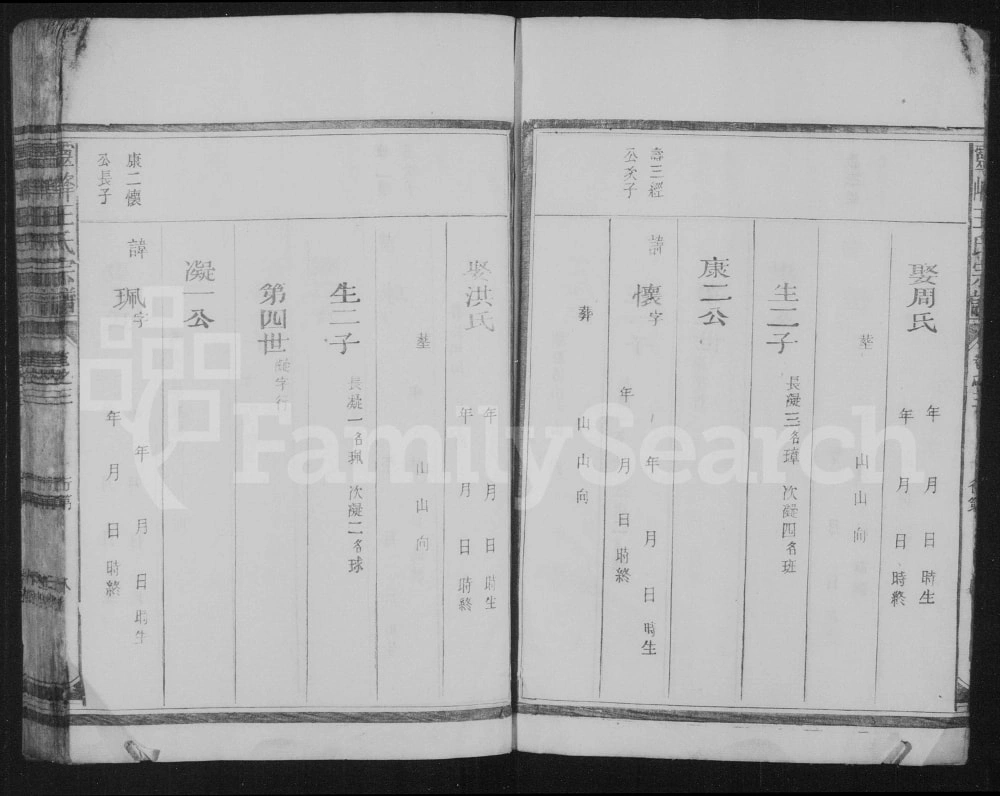 娶周氏
年 月 日 時生
年 月 日 時終
墓 山 山 向
生二子
長凝三名璋 次凝四名班
康二公
壽三經
公次子
諱 懷 字
年 月 日 時生
年 月 日 時終
葬 山 山 向
娶洪氏
年 月 日 時生
年 月 日 時終
墓 山 山 向
生二子
長凝一名珮 次凝二名球
第四世
凝字行
凝一公
康二懷
公長子
諱 珮 字
年 月 日 時生
年 月 日 時終
靈峰王氏宗譜
FamilySearch